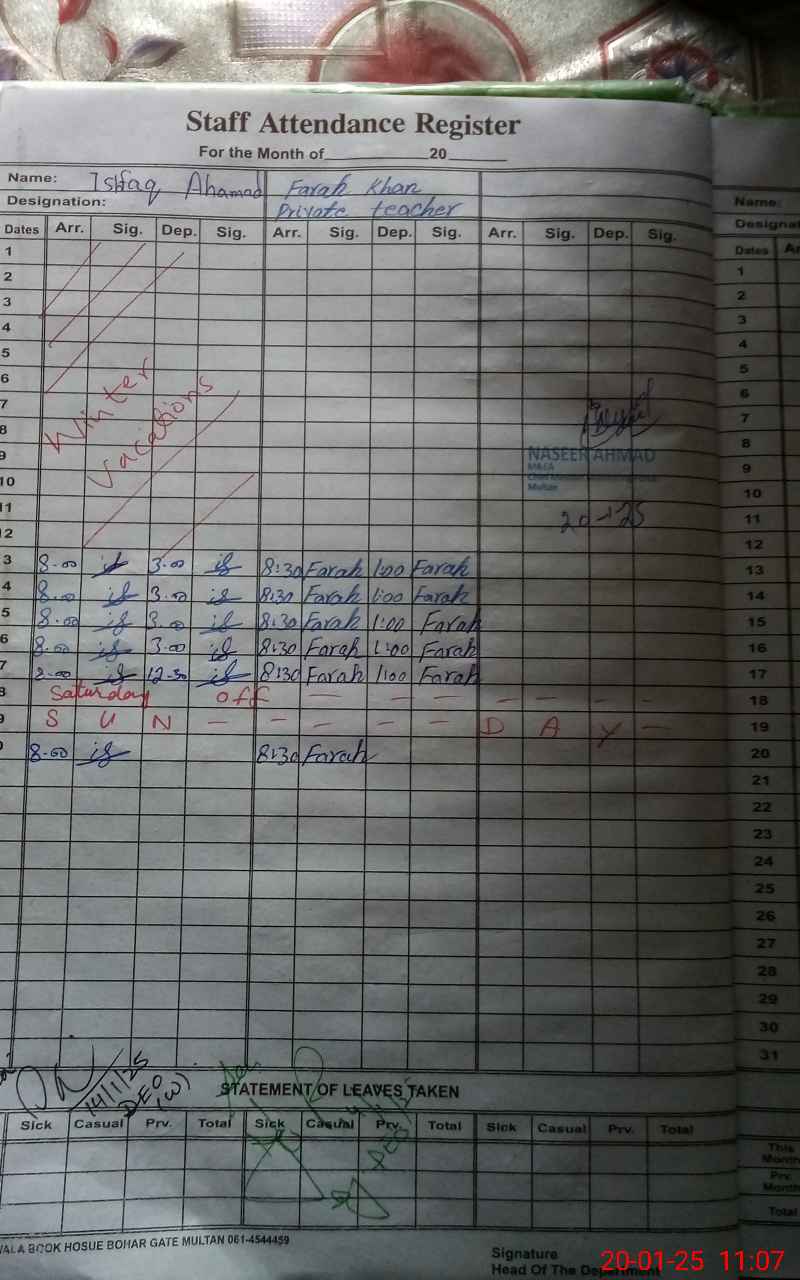 Staff Attendance Register
For the Month of 20
Name: Ishfaq Ahamad Farah Khan Name:
Designation: Private teacher Designat
Dates Arr. Sig. Dep. Sig. Arr. Sig. Dep. Sig. Arr. Sig. Dep. Sig. Dates Ar
1 1
2 2
3 3
4 4
5 5
6 6
7 7
8 8
9 9
10 10
11 11
2 12
Winter
vacations
NASEER AHMAD
Multan
20-1-25
3 8-00 3-00 8:30 Farah 1:00 Farah 13
4 8-00 3-00 8:30 Farah 1:00 Farah 14
5 8-00 3-00 8:30 Farah 1:00 Farah 15
6 8-00 3-00 8:30 Farah 1:00 Farah 16
7 12-30 8:30 Farah 1:00 Farah 17
8 Saturday off — — — — — — — — 18
9 S U N — — — — — D A Y — 19
8-00 8:30 Farah 20
21
22
23
24
25
26
27
28
29
30
31
14/1/25
DEO
(W)
STATEMENT OF LEAVES TAKEN
Sick Casual Prv. Total Sick Casual Prv. Total Sick Casual Prv. Total
This Month
Prv. Month
Total
WALA BOOK HOSUE BOHAR GATE MULTAN 061-4544459
Signature
Head Of The Department
20-01-25 11:07